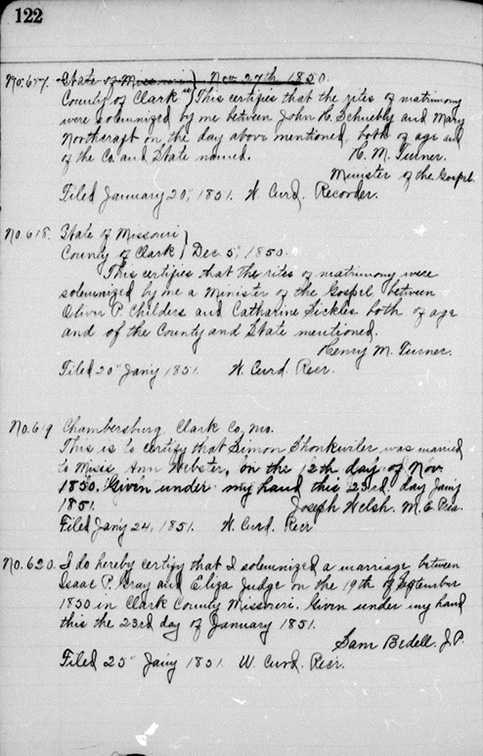 122
No. 617. State of Missouri } Nov 27th 1850.
County of Clark ss } This certifies that the rites of matrimony
were solemnized by me between John H. Schnebly and Mary
Northcraft on the day above mentioned, both of age and
of the Co. and State named. H. M. Turner.
Minister of the Gospel.
Filed January 20", 1851. W. Curd, Recorder.
No. 618. State of Missouri }
County of Clark } Dec. 5", 1850.
This certifies that the rites of matrimony were
solemnized by me a Minister of the Gospel between
Oliver P. Childers and Catharine Sickles both of age
and of the County and State mentioned.
Henry M. Turner.
Filed 20" Jan'y 1851. W. Curd. Recr.
No. 619 Chambersburg Clark Co, Mo.
This is to certify that Simon Shonkwiler was married
to Miss Ann Webster, on the 12th day of Nov.
1850. Given under my hand this 23rd day Jan'y
1851. Joseph Welsh. M. E. Pea.
Filed Jan'y 24, 1851. W. Curd. Recr
No. 620. I do hereby certify that I solemnized a marriage between
Isaac P. Gray and Eliza Judge on the 19th of September
1850 in Clark County Missouri. Given under my hand
this the 23rd day of January 1851.
Sam Bedell. J.P.
Filed 25" Jan'y 1851 W. Curd. Recr.